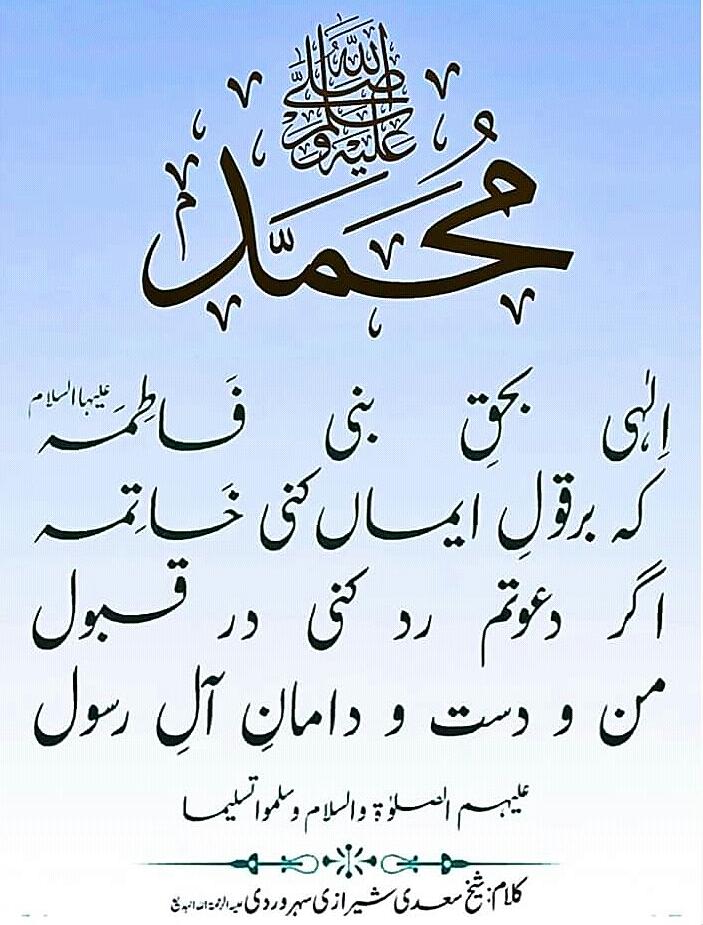 محمد
صلی اللہ علیہ وسلم
اِلٰہی بحقِ بنی فَاطِمَہ علیہا السلام
کہ برقولِ ایماں کنی خَاتِمہ
اگر دعوتم رد کنی در قبول
من و دست و دامانِ آلِ رسول
علیہم الصلوٰۃ والسلام وسلموا تسلیما
کلام: شیخ سعدی شیرازی سہروردی